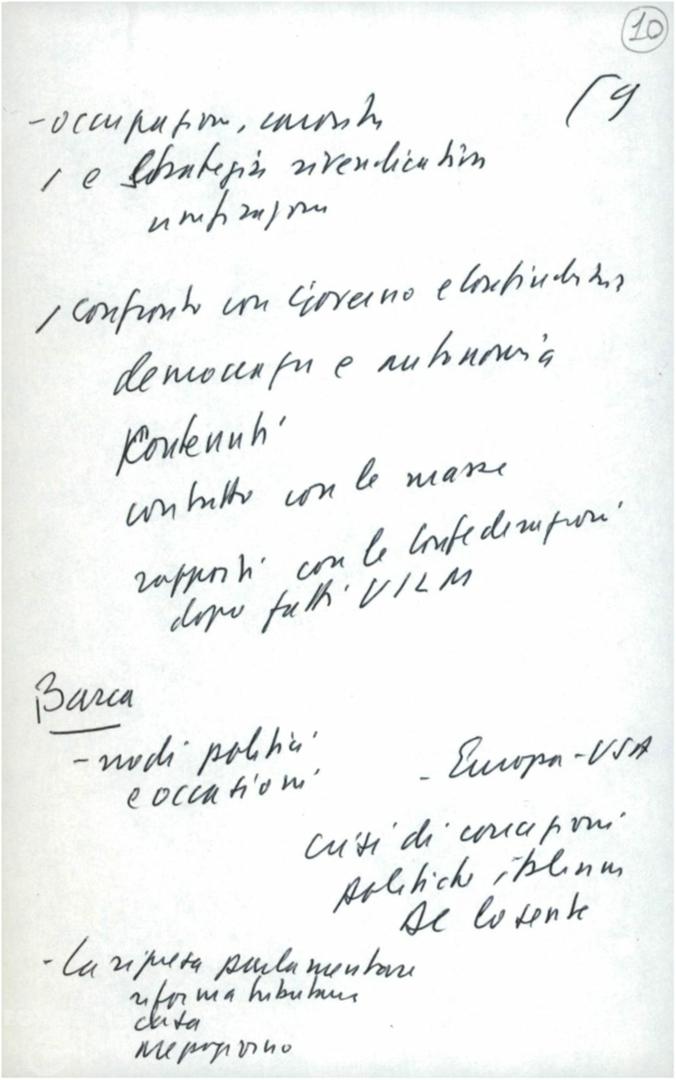 10
9
- occupazione, crescita
/ e strategia rivendicativa
unificazione
/ confronto con Governo e Confindustria
democrazia e autonomia
Contenuti
contatto con le masse
rapporti con le Confederazioni
dopo fatti UILM
Barca
- nodi politici
e occasioni
- Europa - USA
crisi di concezioni
politiche italiana
se lo sente
- La ripresa parlamentare
riforma tributaria
casa
Mezzogiorno